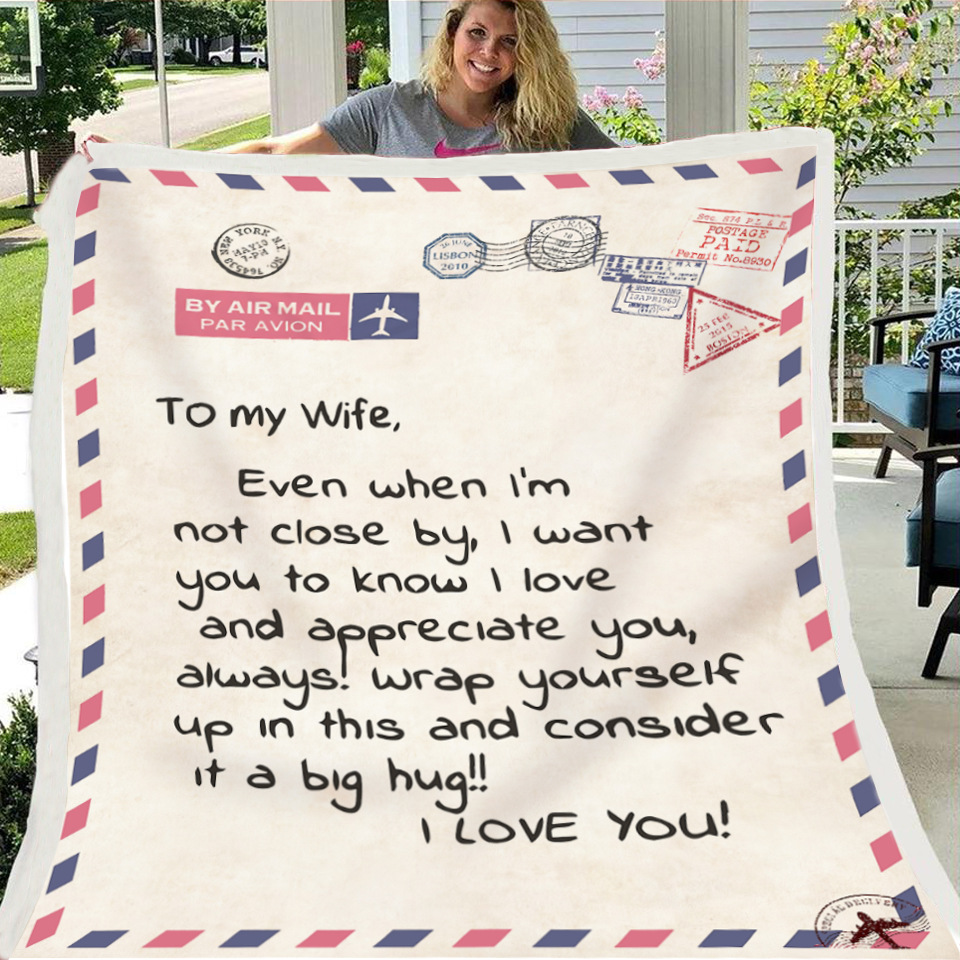 NEW YORK N.Y.
MAY 19
7-PM
NO. 764539
26 JUNE
LISBON
2010
Sec. 874 P.L & R.
POSTAGE
PAID
Permit No.8930
HONG-KONG
13APR1963
25 FEB
2015
BOSTON
BY AIR MAIL
PAR AVION
To my Wife,
Even when I'm
not close by, I want
you to know I love
and appreciate you,
always! wrap yourself
up in this and consider
it a big hug!!
I LOVE YOU!
SPECIAL DELIVERY